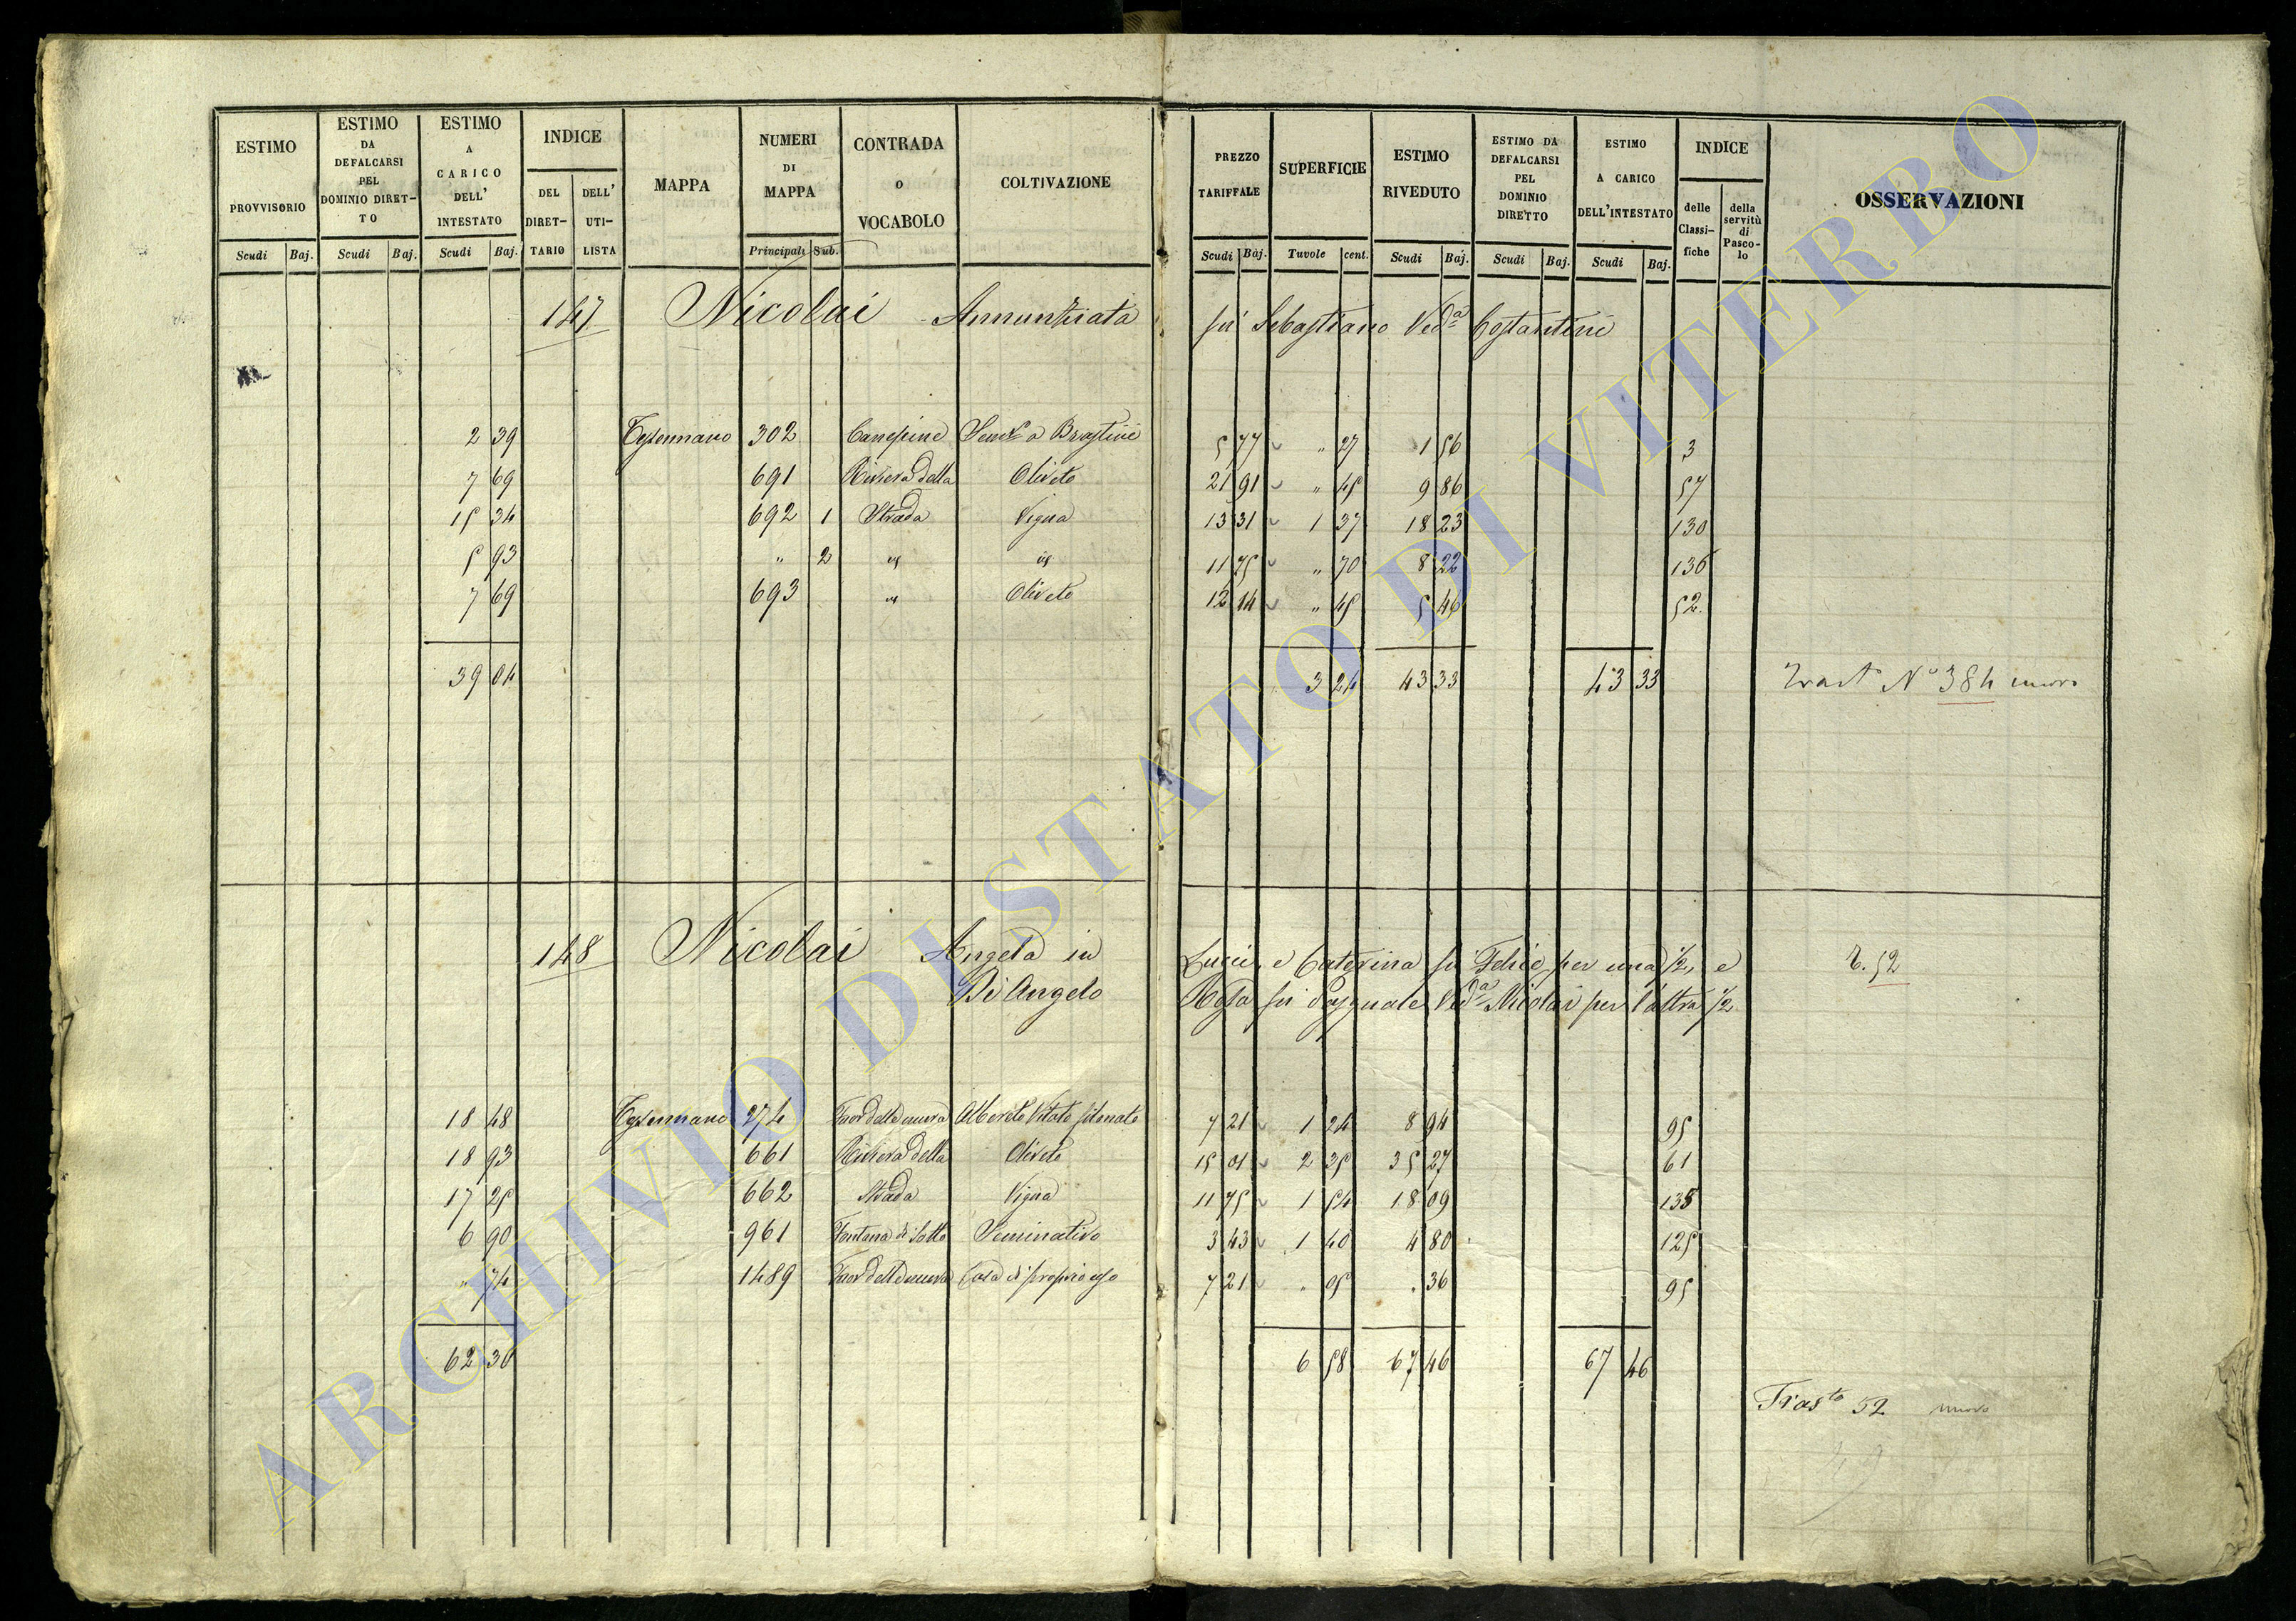 ESTIMO PROVVISORIO | ESTIMO DA DEFALCARSI PEL DOMINIO DIRETTO | ESTIMO A CARICO DELL' INTESTATO | INDICE DEL DIRETTARIO | DELL' UTILISTA | MAPPA | NUMERI DI MAPPA | CONTRADA O VOCABOLO | COLTIVAZIONE | PREZZO TARIFFALE | SUPERFICIE | ESTIMO RIVEDUTO | ESTIMO DA DEFALCARSI PEL DOMINIO DIRETTO | ESTIMO A CARICO DELL'INTESTATO | INDICE delle Classifiche | della servitù di Pascolo | OSSERVAZIONI
Scudi Baj. | Scudi Baj. | Scudi Baj. | Principali Sub. | Scudi Baj. | Tavole cent. | Scudi Baj. | Scudi Baj. | Scudi Baj.
147 Nicolai Annunziata fu Sebastiano Ved.a Costantini
2 39 Tessennano 302 Canepine Sem.o a 5 77 " 27 1 56 3
7 69 691 Riviera della Oliveto 21 91 " 45 9 86 57
15 34 692 1 Strada Vigna 13 31 1 37 18 23 130
5 93 " 2 id id 11 75 " 70 8 22 136
7 69 693 id Oliveto 12 14 " 45 5 46 52.
39 04 3 24 43 33 43 33 Trast.o N.o 384 nuovo
148 Nicolai Angela in Lucia, e Caterina fu Felice per una 1/2, e T. 52
Di Angelo Rosa fu Pasquale Ved.a Nicolai per l'altra 1/2
18 48 Tessennano 274 Alberato Vitato 7 21 1 24 8 94 95
18 93 661 Riviera della Oliveto 15 01 2 35 35 27 61
17 25 662 Strada Vigna 11 75 1 54 18 09 135
6 90 961 Fontana di Sotto Seminativo 3 43 1 40 4 80 125
" 74 1489 Casa di proprio uso 7 21 " 05 . 36 95
62 30 6 58 67 46 67 46
Trasto 52 nuovo
49
ARCHIVIO DI STATO DI VITERBO